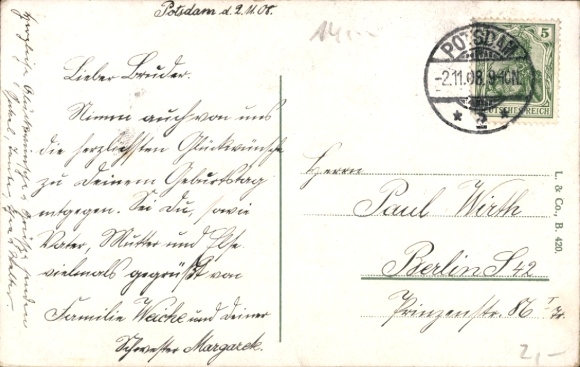 Potsdam d. 2.11.08.
Lieber Bruder.
Nimm auch von uns
die herzlichsten Glückwünsche
zu Deinem Geburtstag
entgegen. Sei Du, sowie
Vater, Mutter und Ilse
vielmals gegrüßt von
Familie Weiche und deiner
Schwester Margarete.
Herzliche Glückwünsche
POTSDAM
-2.11.08. 9-10N.
* 2 *
5
DEUTSCHES REICH
Herrn
Paul Wirth
Berlin S 42
Prinzenstr. 86 I Tr.
L. & Co., B. 420.
2,-